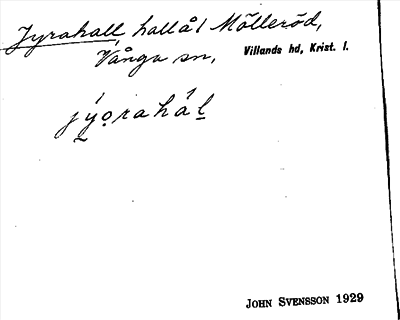 Jyrahall, hallå i Mölleröd,
Vånga sn, Villands hd, Krist. l.
jýo̱rahál̲
JOHN SVENSSON 1929